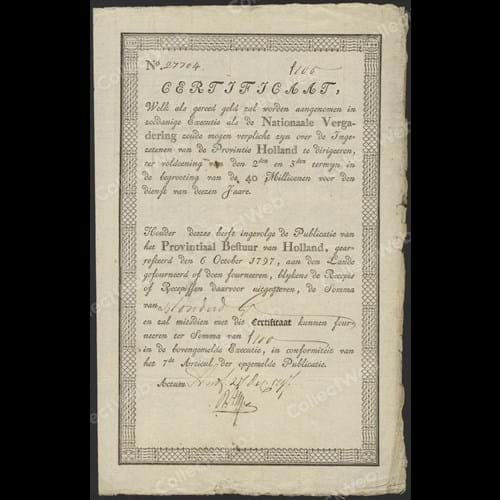 No. 27704. f100
CERTIFICAAT,
Welk als gereed geld zal worden aangenomen in
zoddanige Executie als de Nationaale Verga-
dering zoude mogen verplicht zyn over de Inge-
zetenen van de Provintie Holland te dirigeeren,
ter voldoening van den 2den en 3den termyn in
de begrooting van de 40 Millioenen voor den
dienst van deezen Jaare.
Houder deezes heeft ingevolge de Publicatie van
het Provintiaal Bestuur van Holland, gear-
resteerd den 6 October 1797, aan den Lande
gefourneerd of doen fourneeren, blykens de Recepis
of Recepissen daarvoor uitgegeeven, de Somma
van Honderd G
en zal mitsdien met dit Certificaat kunnen four-
neeren ter Somma van f100
in de bovengemelde Executie, in conformiteit van
het 7de Articul der opgemelde Publicatie.
Actum
CollectWeb